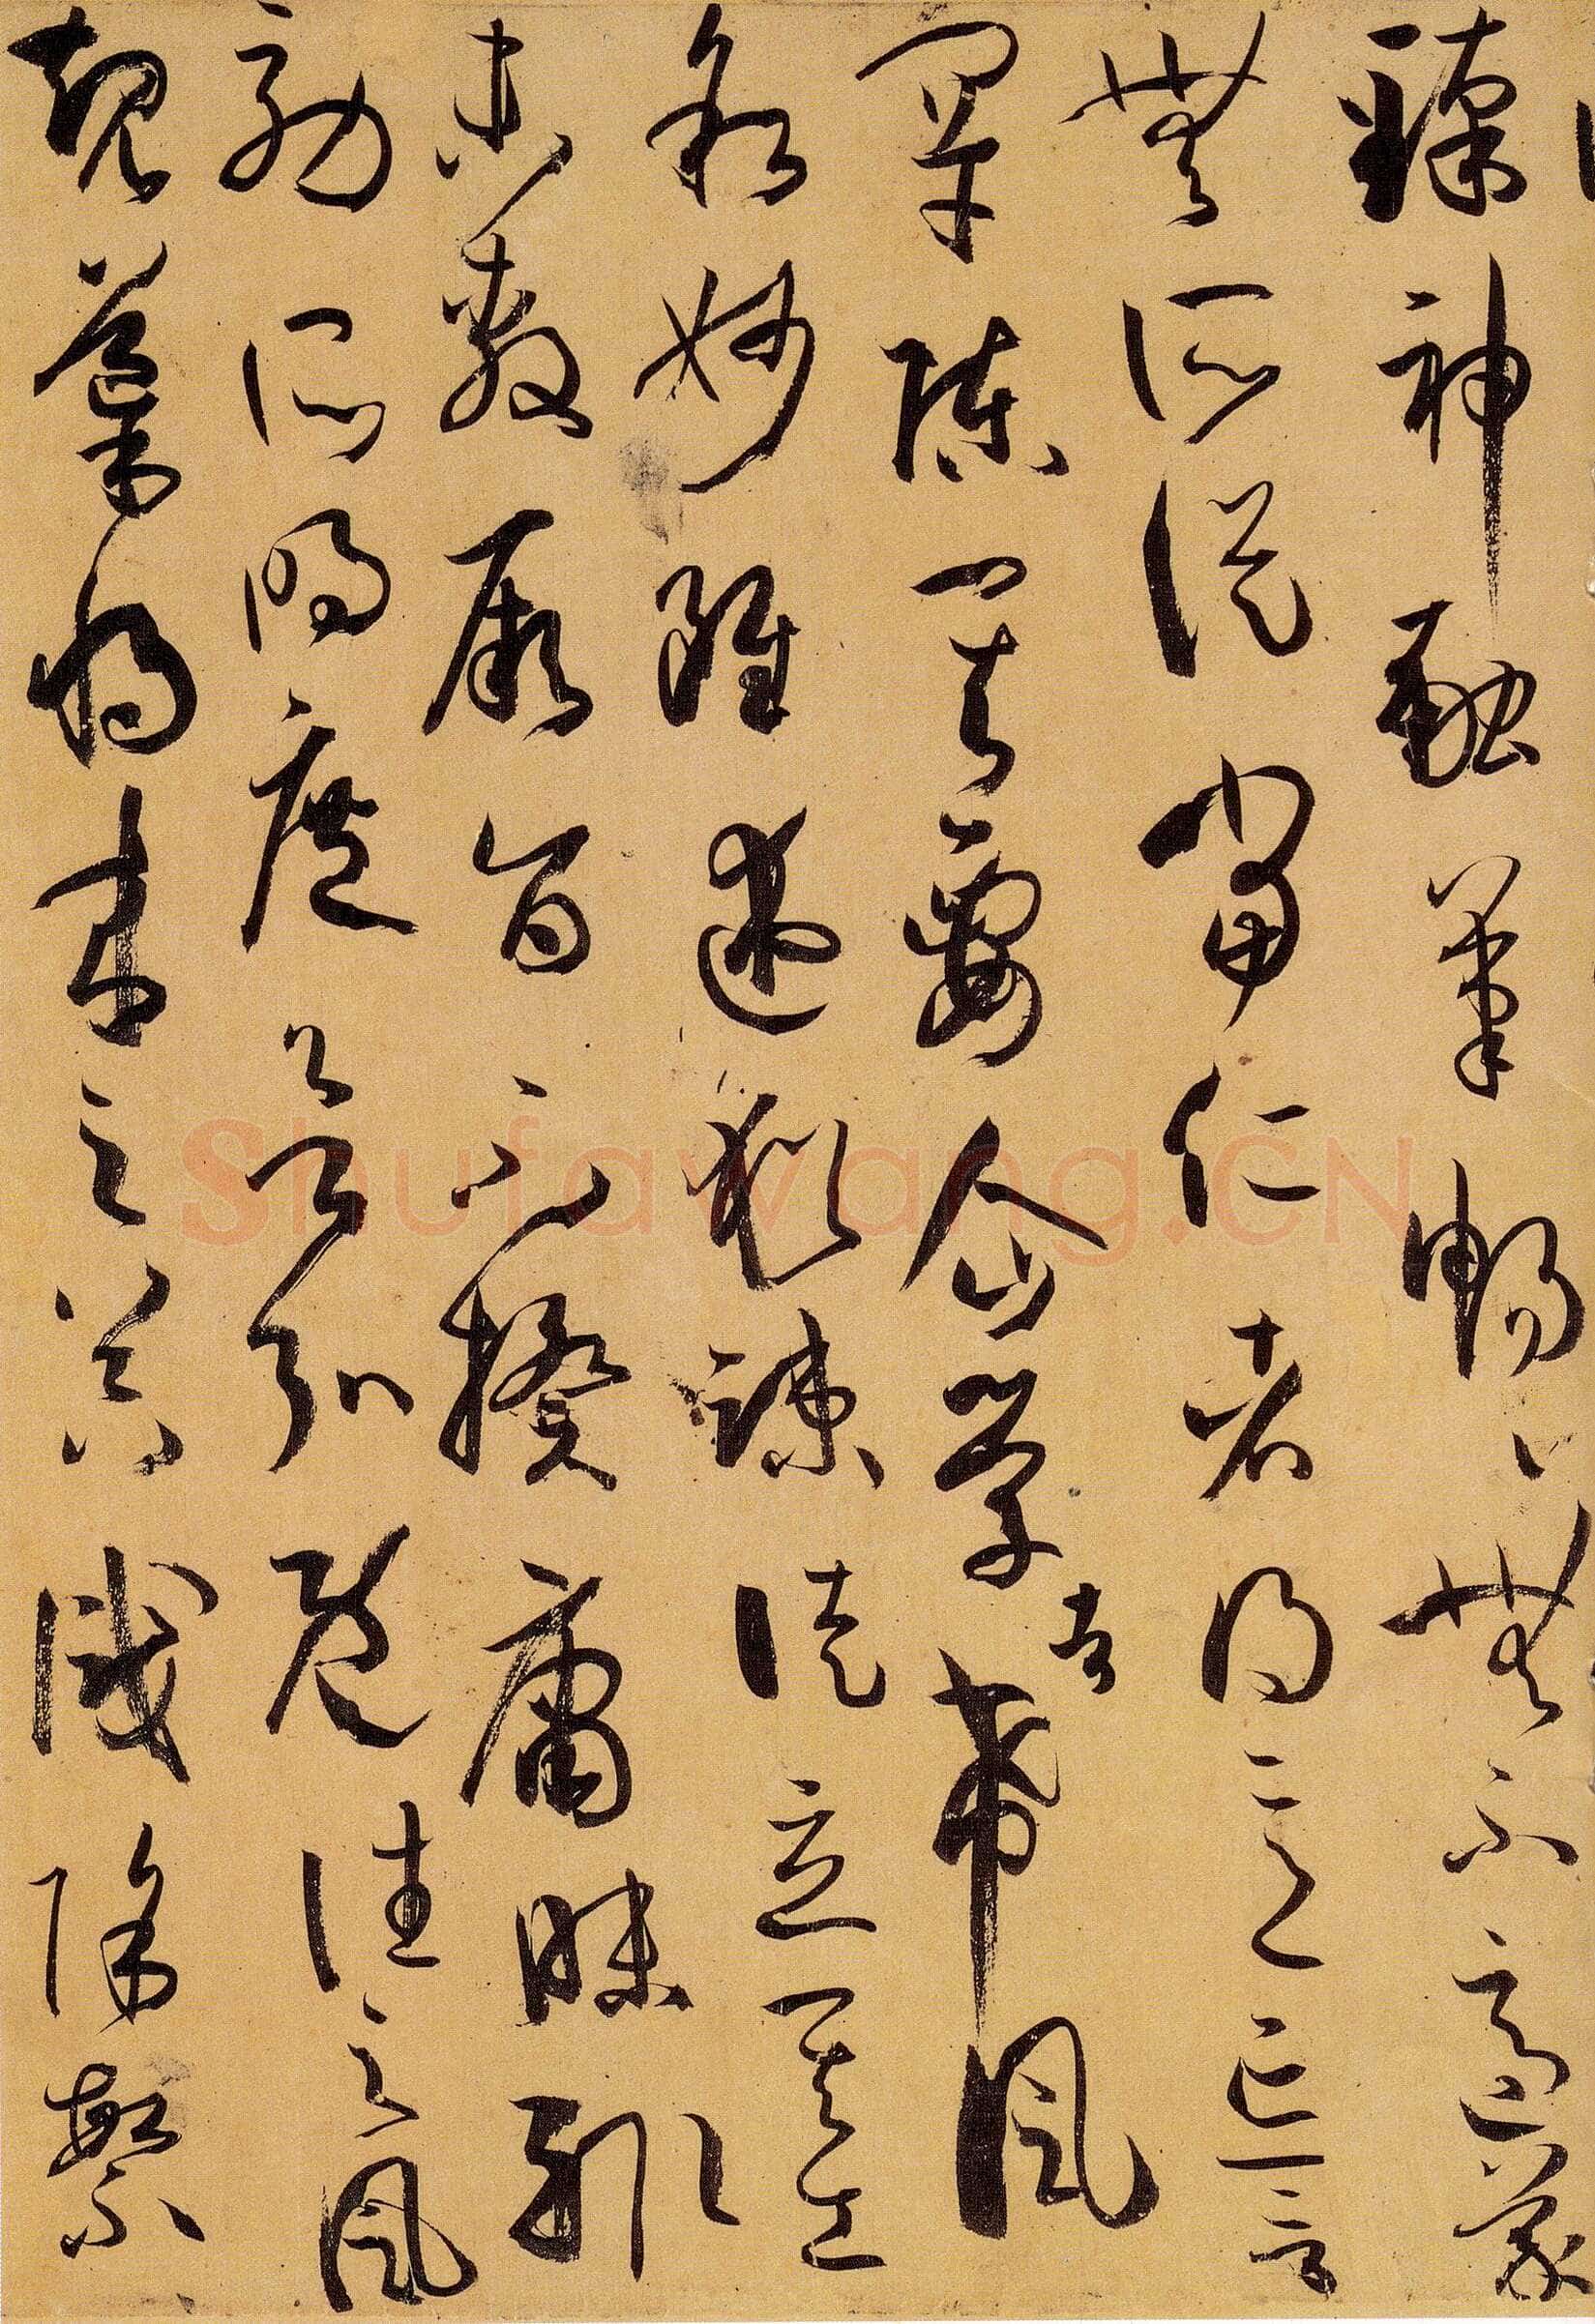 臻神融筆暢〻無不適蒙
無所從當仁者得意忘言
罕陳其要企學者希風
叙妙雖述猶疎徒立其工
未敷厥旨不揆庸昧輒
効所明庶欲弘既往之風
規導將来之器識除繁
Shufawang.CN